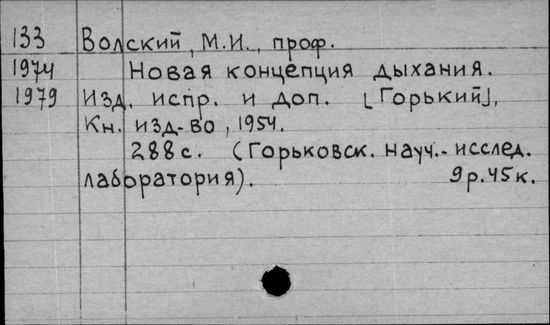 133 Волский, М.И., проф.
1974 Новая концепция дыхания.
1979 Изд. испр. и доп. [Горький],
Кн. изд-во, 1954.
288с. (Горьковск. науч.-исслед.
лаборатория). 9р.45к.